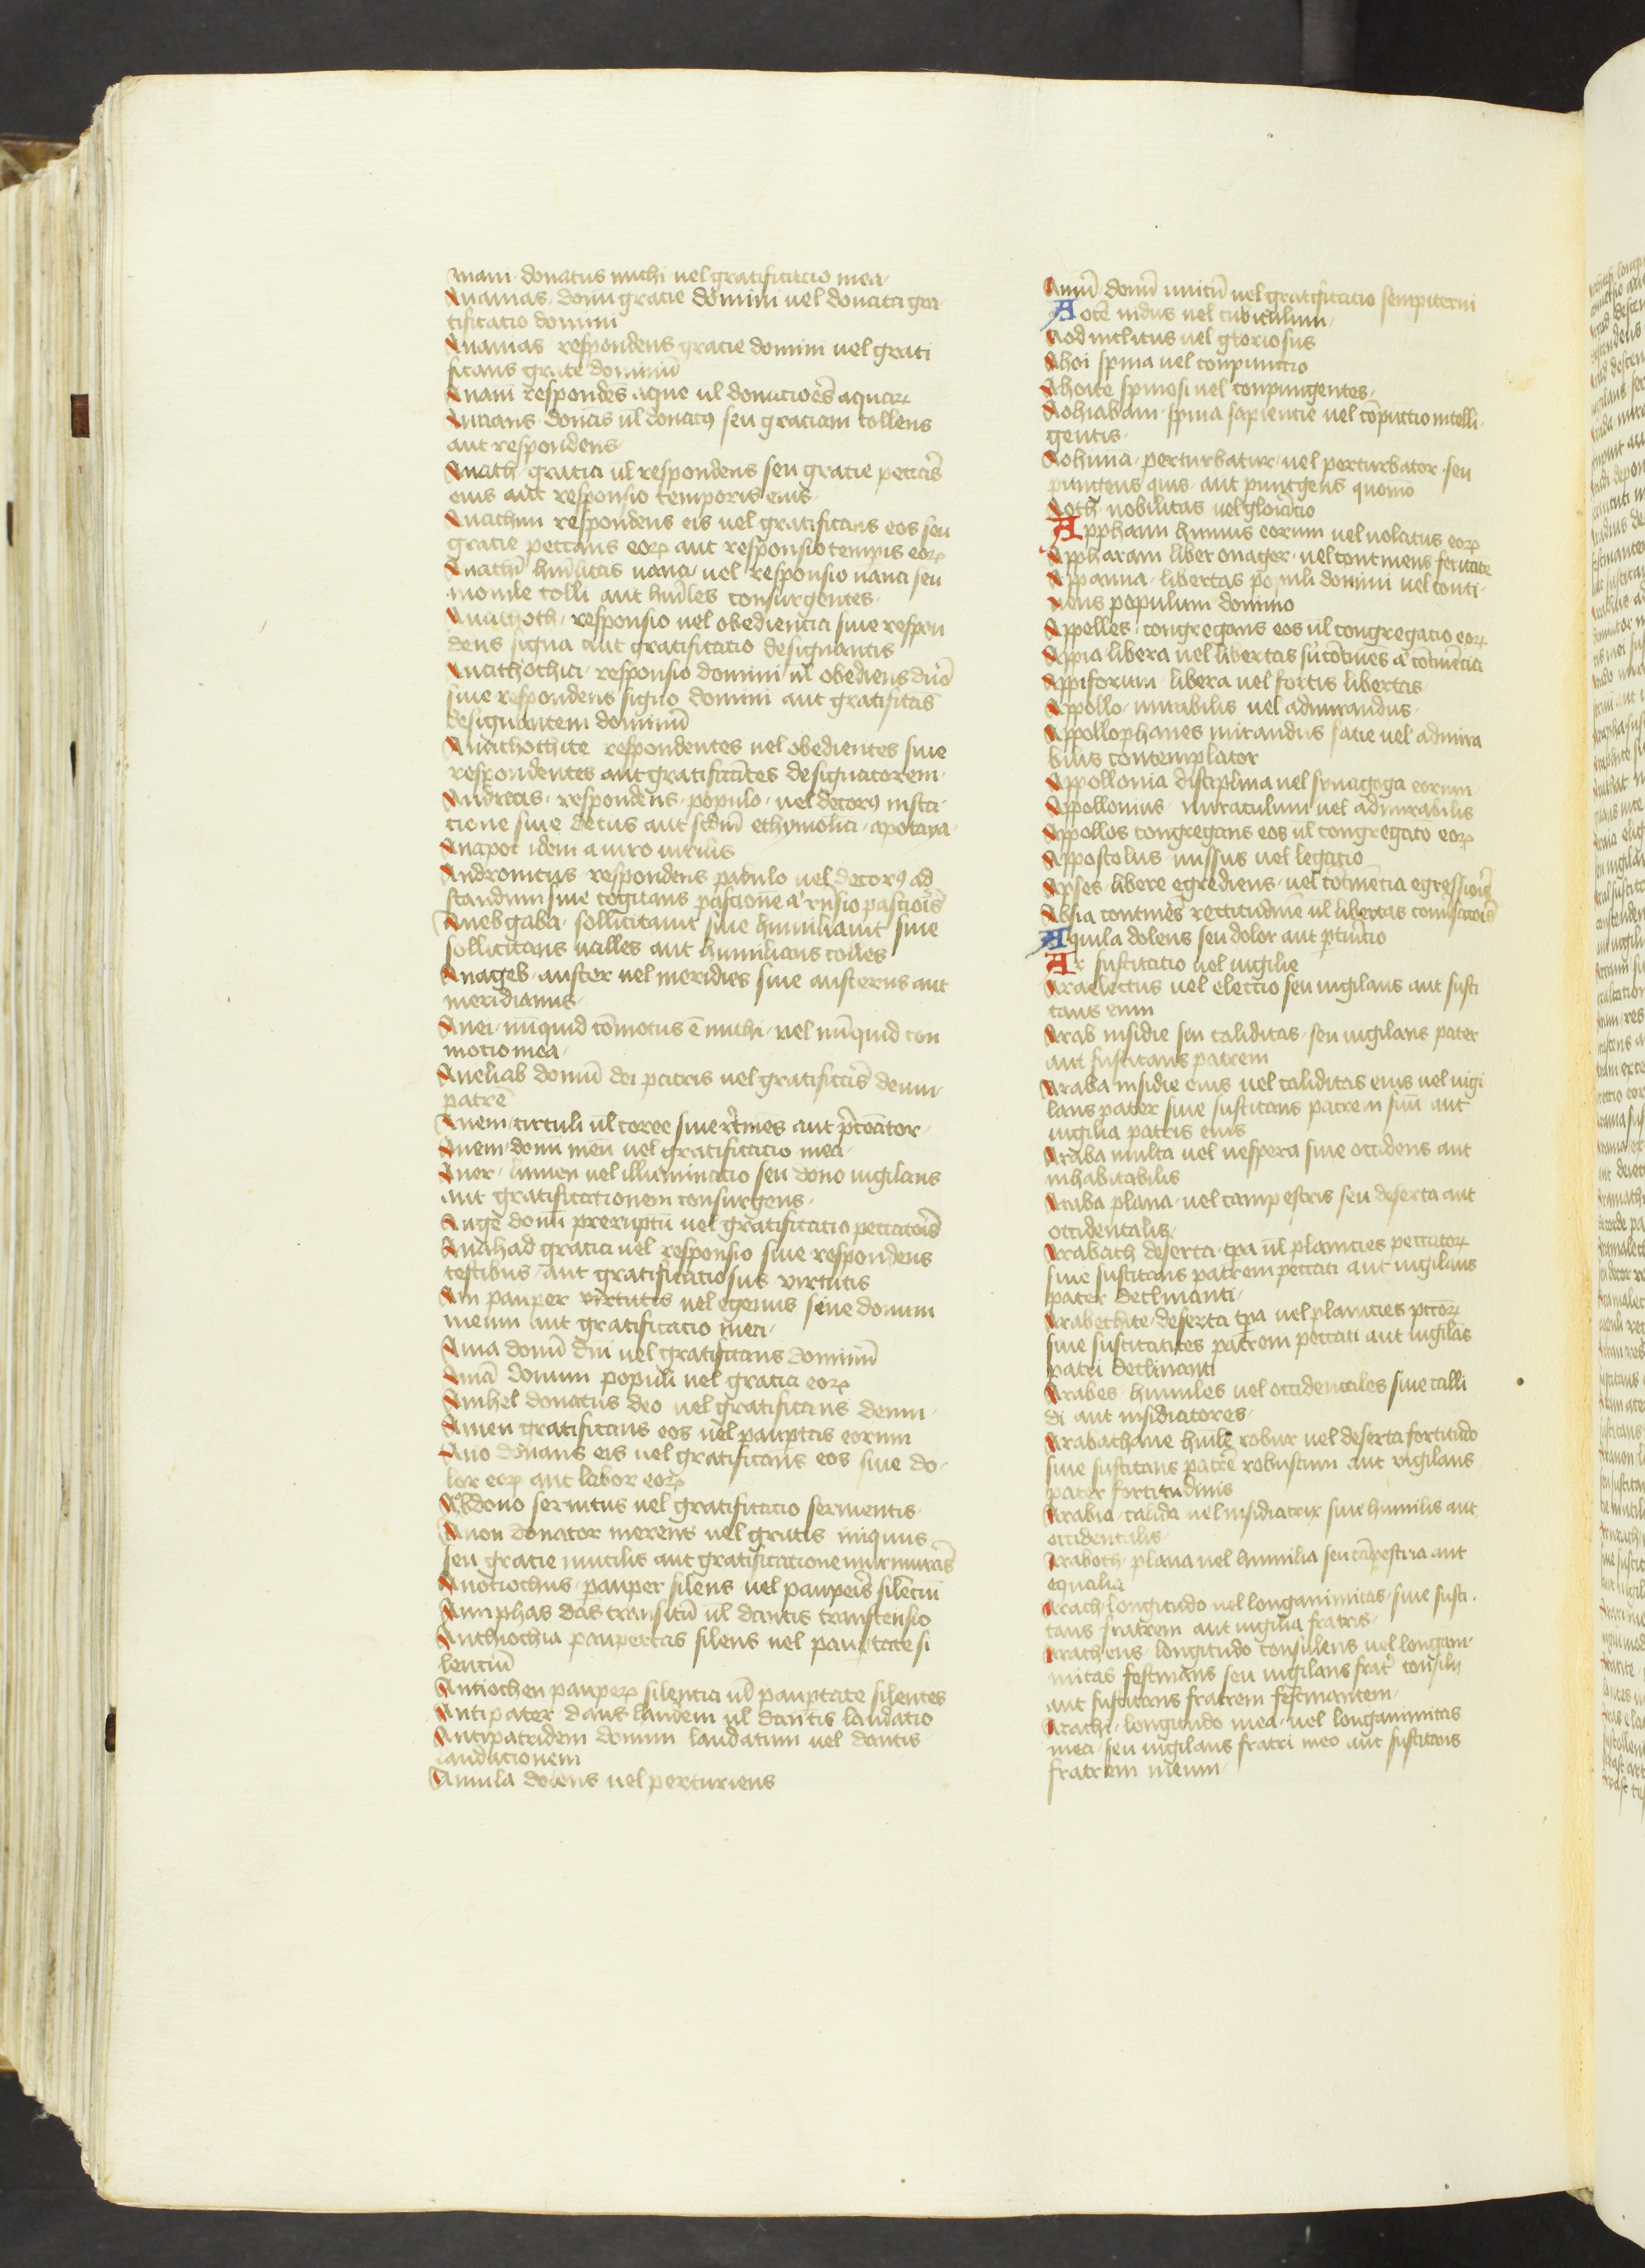 mani donatus michi uel gratificatio mea
Ananias donū gratie domini uel donata gra
tificatio domini
Ananias respondens gratie domini uel grati
ficans grate dominū
Anam respondēs aque ul donatiōes aquaꝝ
Anians donās ul donatꝰ seu gratiam tollens
aut respondens
Anath gratia ul respondens seu gratie peccās
eius aut responsio temporis eius
Anathim respondens eis uel gratificans eos seu
gratie peccans eoꝝ aut responsio tempis eoꝝ
Anathī hūilitas uana uel responsio uana seu
monile colli aut hūiles consurgentes
Anathoth responsio uel obediencia siue respon
dens signa aut gratificatio designantis
Anathothia responsio domini ul obediens dnō
siue respondens signo domini aut gratificās
designantem dominū
Anathothite respondentes uel obedientes siue
respondentes aut gratificātes designatorem
Andreas respondens populo uel decorꝰ insta
tione siue decus aut scdm ethymolia apotaya
Anapot idem a uiro uirilis
Andronicus respondens pabulo uel decorꝰ ad
standum siue cogitans pastionē aut rnsio pastiōis
Anebgaba sollicitauit siue humiliauit siue
sollicitans ualles aut humilians colles
Anageb auster uel meridies siue austerus aut
meridianus
Anei nūquid cōmotus ē michi uel nūquid con
motio mea
Aneliab donū dei patris uel gratificās deum
patrē
Anem circuli ul coree siue
Anem donū meū uel gratificatio mea
Aner lumen uel illuminatio seu dono uigilans
aut gratificationem consurgens
Ange donū preruptū uel gratificatio peccatoris
Anahad gratia uel responsio siue respondens
testibus aut gratificatio sue virtutis
Ani pauper virtutis uel egenus siue donum
meum aut gratificatio mea
Ania donū dni uel gratificans dominū
Aniā donum populi uel gratia eoꝝ
Anihel donatus deo uel gratificans deum
Anien gratificans eos uel pauptas eorum
Ano donans eis uel gratificans eos siue do
lor eoꝝ aut labor eoꝝ
Abdono seruitus uel gratificatio seruientis
Anon donator merens uel gratis iniquus
seu gratie inutilis aut gratificatione murmurās
Anotiochus pauper silens uel paupeis silēciū
Anniphas dās transitū ul dantis transcensio
Anthiochia paupertas silens uel pauptate si
lenciū
Antiochen paupeꝝ silentia ul pauptate silentes
Antipater dans laudem ul dantis laudatio
Antipatridem donum laudatum uel dantis
laudationem
Annila dolens uel perturiens
Annū donū unicū uel gratificatio sempiterni
Aoce nidus uel cubiculum
Aod inclitus uel gloriosus
Ahoi spina uel conpunctio
Ahoite spinosi uel conpungentes
Aohiabam spina sapientie uel cōpūctio intelli
gentis
Aohima perturbatur uel perturbator seu
pungens quis aut puntgens quomō
Aoth nobilitas uel gloriatio
Apphann humus eorum uel uolatus eoꝝ
Appharam liber onager uel continens feritatē
Appanna libertas populi domini uel conti
nens populum domino
Appelles congregans eos ul congregatio eoꝝ
Appia libera uel libertas siue cōtinēs aut cōtinēcia
Appiforum libera uel fortis libertas
Appollo mirabilis uel admirandus
Appollophanes mirandus facie uel admira
bilis contemplator
Appollonia disciplina uel synagoga eorum
Appollonius miraculum uel admirabilis
Appollos congregans eos ul congregatō eoꝝ
Appostolus missus uel legatio
Apses libere egrediens uel cōtinētia egressiōis
Absia continēs rectitudinē ul libertas
Aquila dolens seu dolor aut
Ar suscitatio uel uigilie
Ara electus uel electio seu uigilans aut susci
tans eum
Arab insidie siue caliditas seu uigilans pater
aut suscitans patrem
Araba insidie eius uel caliditas eius uel uigi
lans pater siue suscitans patrem suū aut
uigilia patris eius
Araba multa uel uespera siue occidens aut
inhabitabilis
Araba plana uel campestris seu deserta aut
occidentalis
Arabath deserta tpa ul planicies peccatoꝝ
siue suscitans patrem peccati aut uigilans
pater declinanti
Arabethite deserta tpa uel planicies pccōꝝ
siue suscitantes patrem peccati aut uigilās
patri declinanti
Arabes humiles uel occidentales siue calli
di aut insidiatores
Arabathane hūile robur uel deserta fortitudo
siue suscitans patrē robustum aut vigilans
pater fortitudinis
Arabia calida uel insidiatrix siue humilis aut
occidentalis
Araboth plana uel humilia seu cāpestria aut
equalia
Arach longitudo uel longanimitas siue susci
tans fratrem aut uigilia fratris
Aracheus longitudo consulens uel longani
mitas festinans seu uigilans fratris consilij
aut suscitans fratrem festinantem
Arachi longitudo mea uel longanimitas
mea seu uigilans fratri meo aut suscitans
fratrem meum